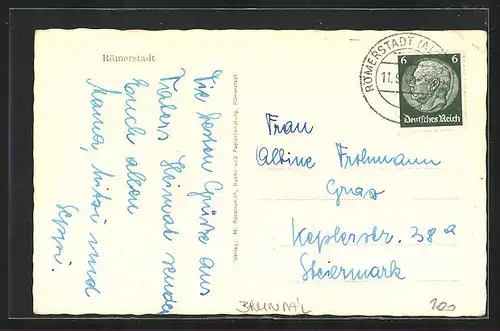 Römerstadt
Die besten Grüße aus
Vaters Heimat sendet
Euch allen
Mama, Mitzi und
Seppi.
Verlag: M. Buch- und Papierhandlung, Römerstadt
RÖMERSTADT
11.9
6 6
Deutsches Reich
Frau
Albine Frohmann
Graz
Keplerstr. 38a
Steiermark
100